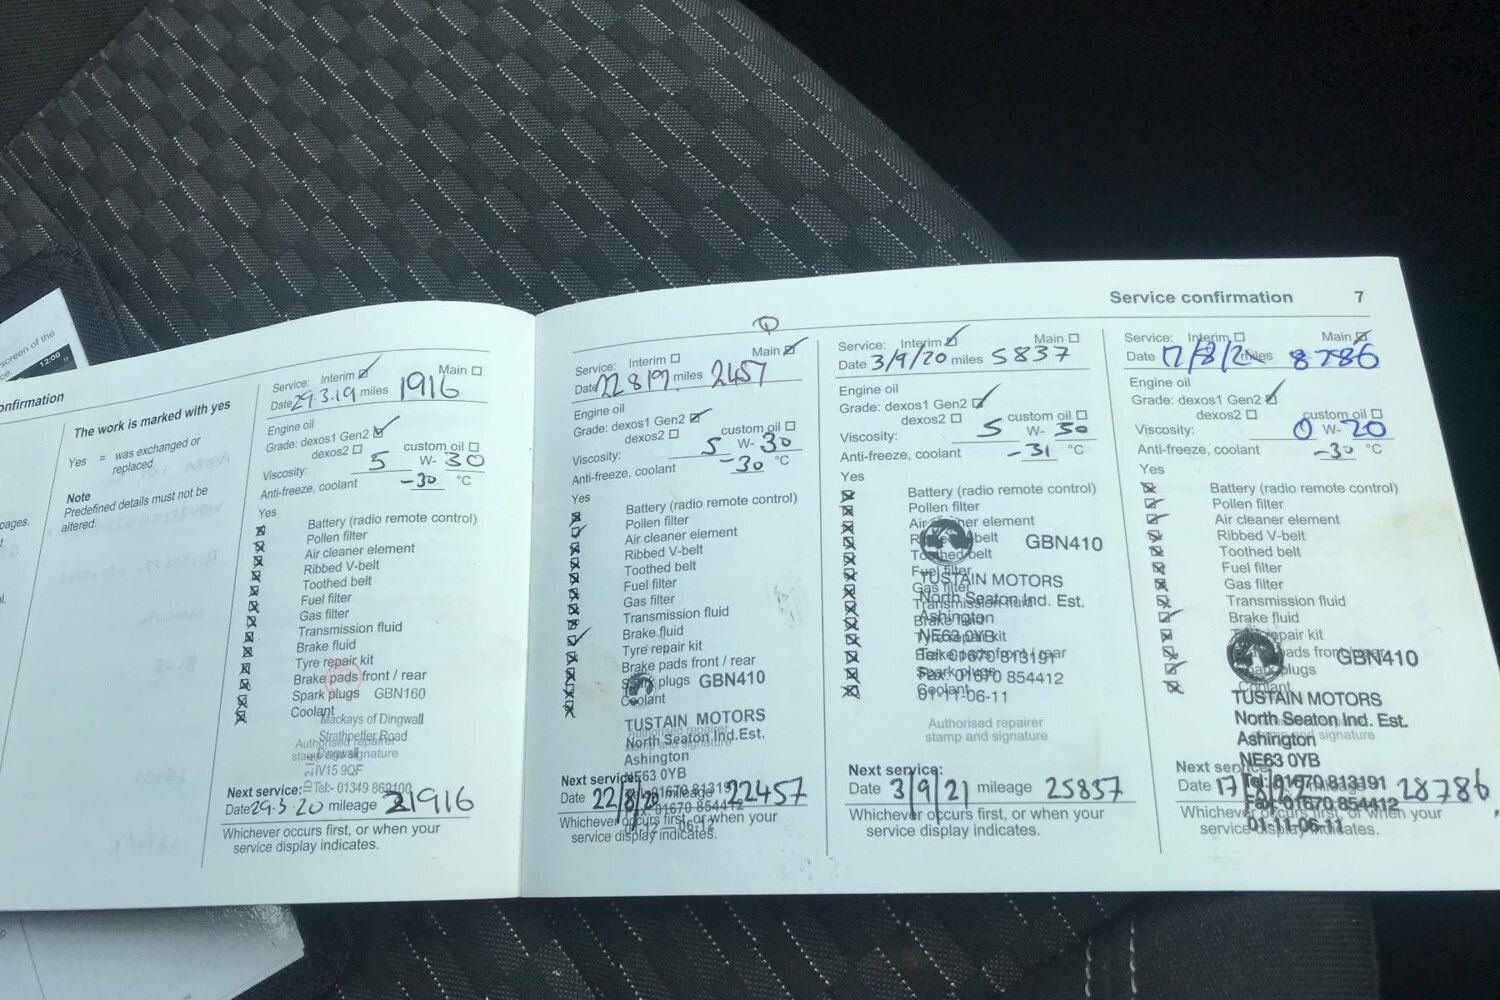 screen of the
12:00
onfirmation
pages.
The work is marked with yes
Yes = was exchanged or
replaced
Note
Predefined details must not be
altered.
Service: Interim Main
Date 29.3.19 miles 1916
Engine oil
Grade: dexos1 Gen2
dexos2 custom oil
Viscosity: 5 W- 30
Anti-freeze, coolant -30 °C
Yes
Battery (radio remote control)
Pollen filter
Air cleaner element
Ribbed V-belt
Toothed belt
Fuel filter
Gas filter
Transmission fluid
Brake fluid
Tyre repair kit
Brake pads front / rear
Spark plugs GBN160
Coolant
Mackays of Dingwall
Strathpeffer Road
Authorised repairer
Dingwall
stamp and signature
IV15 9QF
Tel:- 01349 869100
Next service:
Date 29.3.20 mileage 21916
Whichever occurs first, or when your
service display indicates.
Service confirmation 7
Service: Interim Main
Date 22 8 19 miles 2457
Engine oil
Grade: dexos1 Gen2
dexos2 custom oil
Viscosity: 5 W- 30
Anti-freeze, coolant -30 °C
Yes
Battery (radio remote control)
Pollen filter
Air cleaner element
Ribbed V-belt
Toothed belt
Fuel filter
Gas filter
Transmission fluid
Brake fluid
Tyre repair kit
Brake pads front / rear
Spark plugs GBN410
Coolant
TUSTAIN MOTORS
Authorised repairer
North Seaton Ind.Est.
stamp and signature
Ashington
NE63 0YB
Next service:
01670 813191
Date 22/8/20 mileage 22457
01670 854412
Whichever occurs first, or when your
service display indicates.
Service: Interim Main
Date 3/9/20 miles 5837
Engine oil
Grade: dexos1 Gen2
dexos2 custom oil
Viscosity: 5 W- 30
Anti-freeze, coolant -31 °C
Yes
Battery (radio remote control)
Pollen filter
Air cleaner element
Ribbed V-belt
GBN410
Toothed belt
Fuel filter
TUSTAIN MOTORS
Gas filter
North Seaton Ind. Est.
Transmission fluid
Ashington
Brake fluid
NE63 0YB
Tyre repair kit
Tel: 01670 813191
Brake pads front / rear
Fax: 01670 854412
Spark plugs
Coolant
01-11-06-11
Authorised repairer
stamp and signature
Next service:
Date 3/9/21 mileage 25837
Whichever occurs first, or when your
service display indicates.
Service: Interim Main
Date 17/8/21 miles 8786
Engine oil
Grade: dexos1 Gen2
dexos2 custom oil
Viscosity: 0 W- 20
Anti-freeze, coolant -30 °C
Yes
Battery (radio remote control)
Pollen filter
Air cleaner element
Ribbed V-belt
Toothed belt
Fuel filter
Gas filter
Transmission fluid
Brake fluid
Tyre repair kit
Brake pads front / rear
GBN410
Spark plugs
Coolant
TUSTAIN MOTORS
North Seaton Ind. Est.
stamp and signature
Ashington
NE63 0YB
Next service:
Tel: 01670 813191
Date 17/8/22 mileage 28786
Fax: 01670 854412
Whichever occurs first, or when your
01-11-06-11
service display indicates.